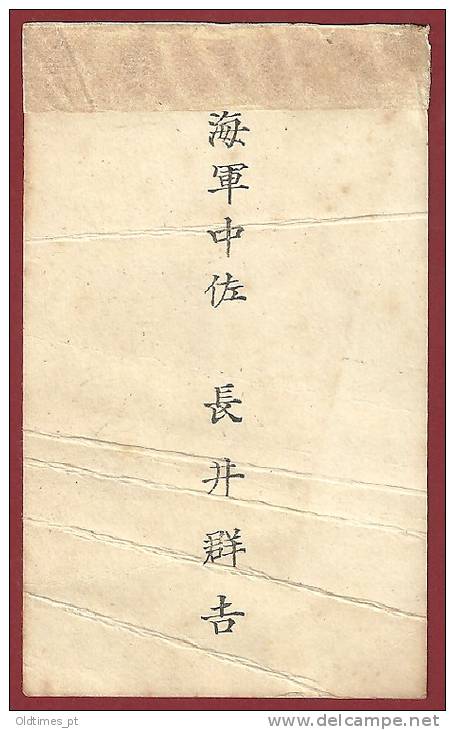 海軍中佐 長井群吉
Oldtimes_pt
delcampe.net